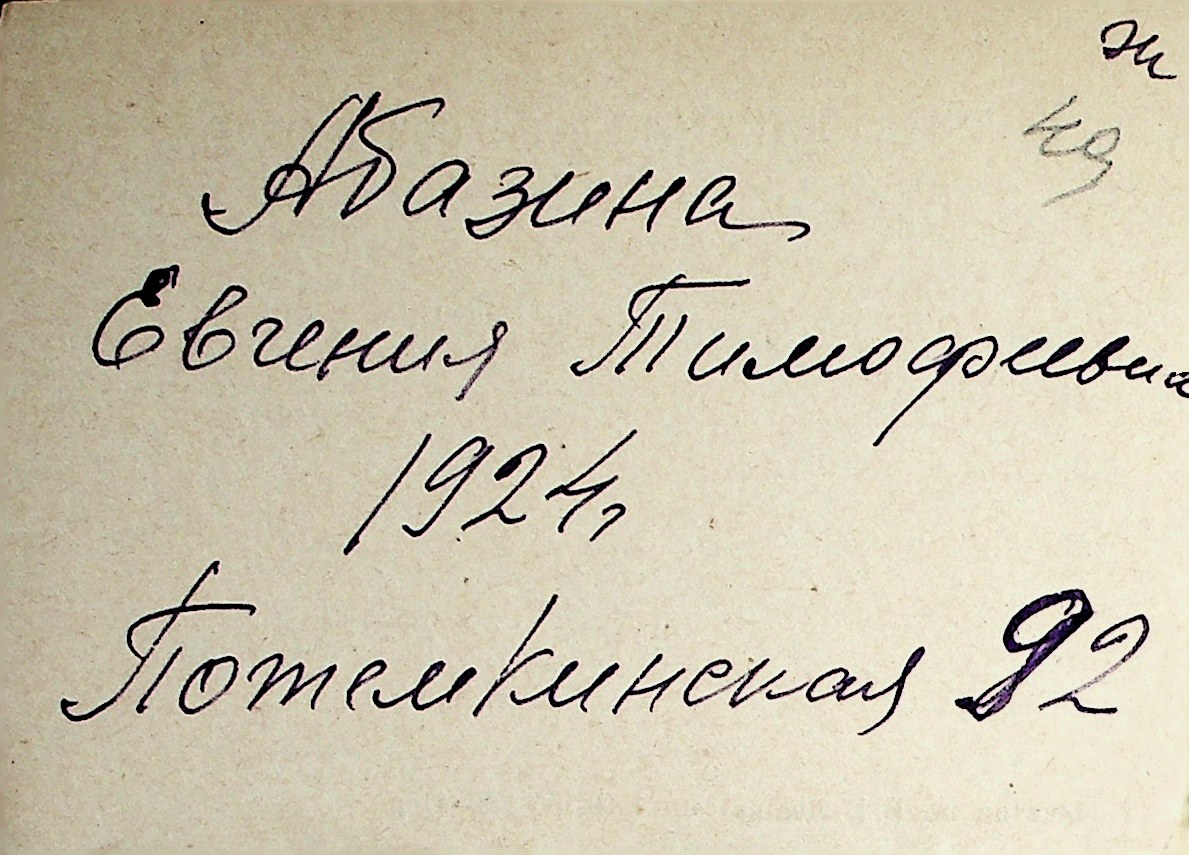 ж
кд
Абазина
Евгения Тимофеевна
1924г
Потемкинская 92